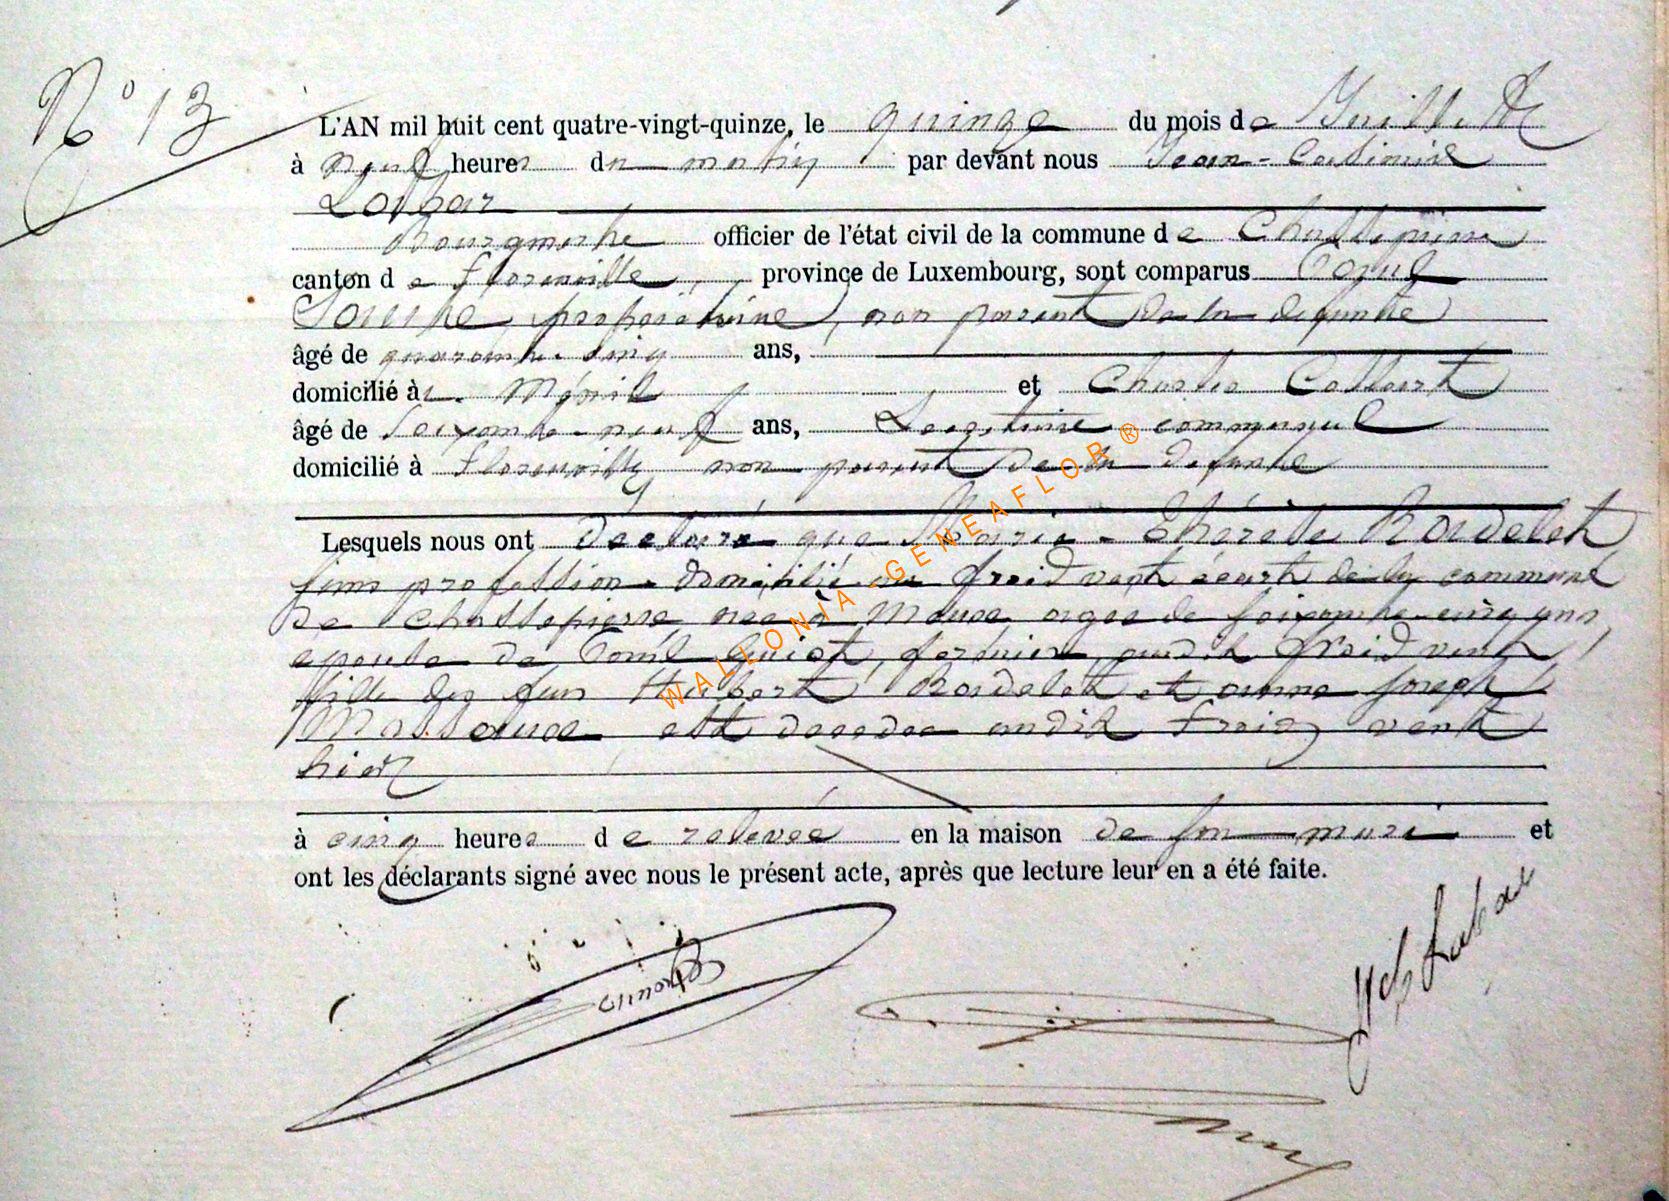 N° 13
L'AN mil huit cent quatre-vingt-quinze, le quinze du mois de Juillet
à neuf heures du matin par devant nous Jean-Casimire
Lothar
Bourgmestre officier de l'état civil de la commune de Chassepierre
canton de Florenville, province de Luxembourg, sont comparus
propriétaire, non parent de la defunte
âgé de quarante-cinq ans,
domicilié à et Charles Collart
âgé de soixante-neuf ans, Secrétaire communal
domicilié à Florenville non parent de la defunte
Lesquels nous ont declaré que Marie-Thérèse Rordelet
sans profession domicilié au froid vent écart de la commune
de Chassepierre nee à agee de soixante-cinq ans,
epouse de Guiot, fermier audit froid vent
fille des feus Hubert Rordelet et anne joseph
est decedee audit froid vent
hier
à cinq heures de relevée en la maison de son mari et
ont les déclarants signé avec nous le présent acte, après que lecture leur en a été faite.
WALLONIA-GENEAFLOR®